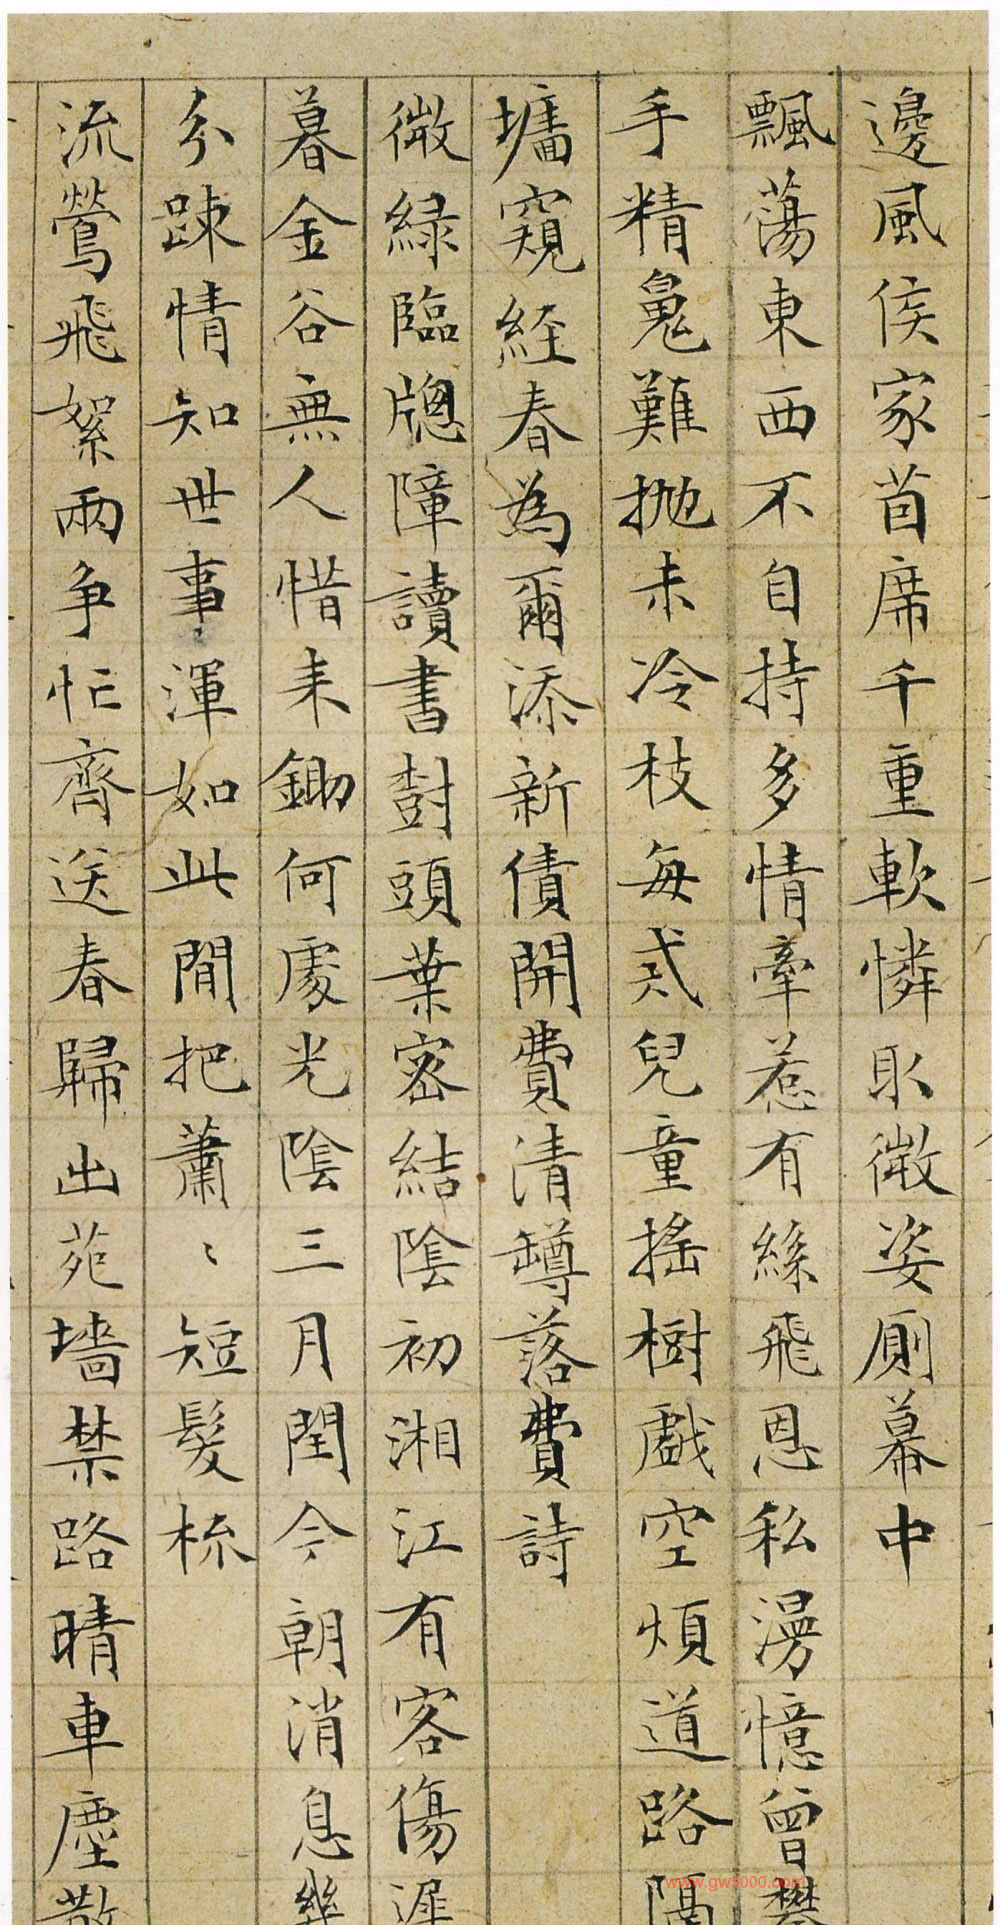 邊風侯家茵席千重軟憐取微姿廁幕中
飄蕩東西不自持多情牽惹有絲飛恩私漫憶曾攀
手精䰟難拋未冷枝每忒兒童搖樹戲空煩道路隔
墻窺經春為爾添新債開費清罇落費詩
微綠臨牕障讀書樹頭葉密結陰初湘江有客傷遲
暮金谷無人惜耒鋤何處光陰三月閏今朝消息幾
分踈情知世事渾如此閒把蕭〻短髮梳
流鶯飛絮兩争忙齊送春歸出苑墻禁路晴車塵散
www.gw5000.com